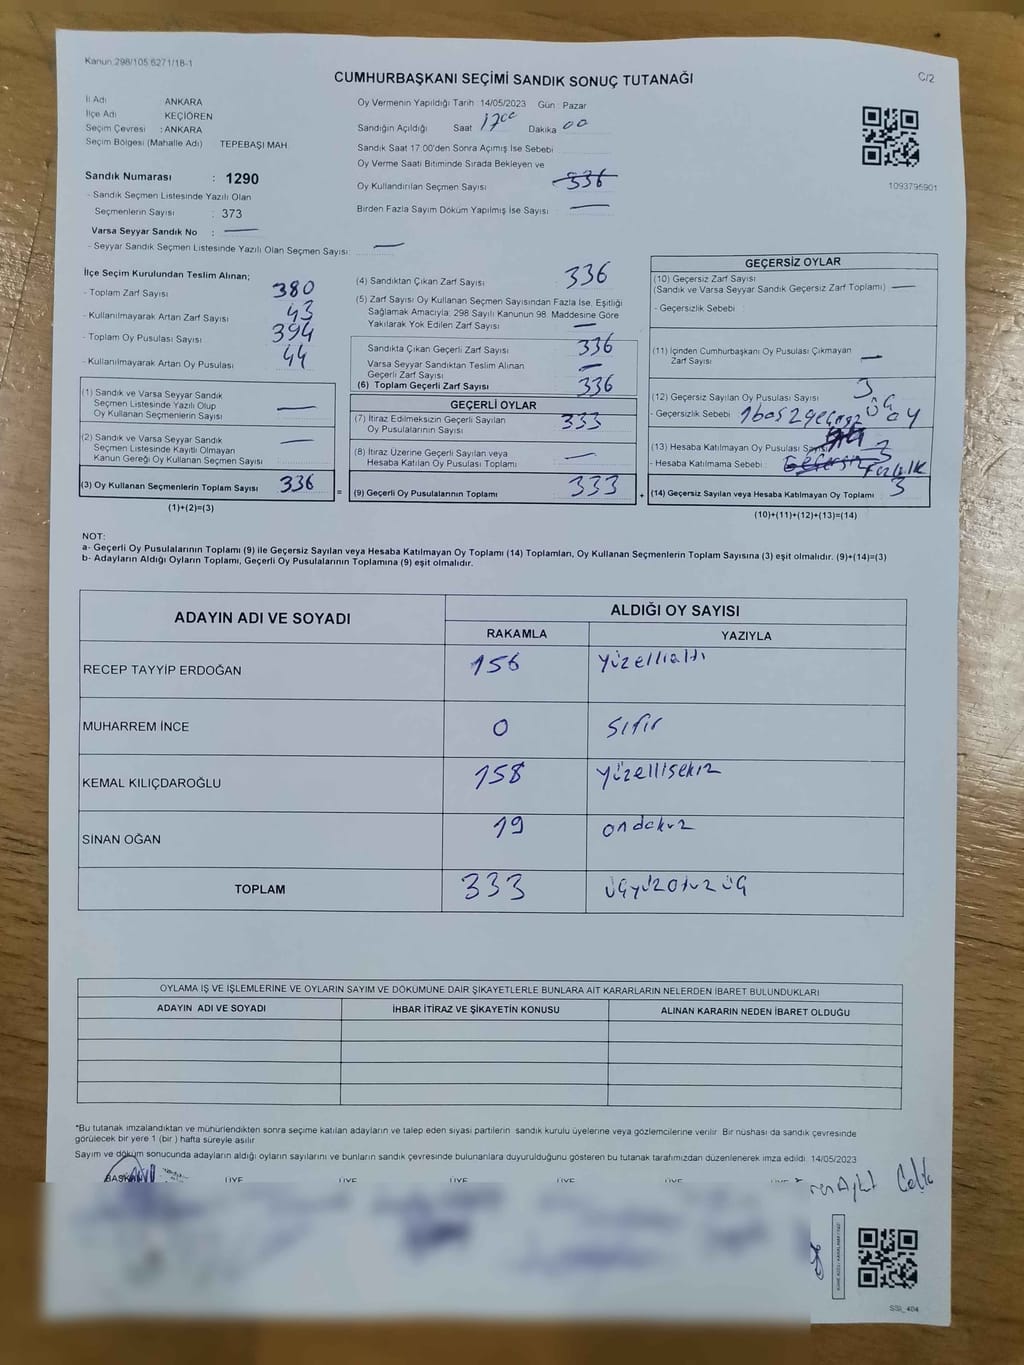 Kanun:298/105.6271/18-1
CUMHURBAŞKANI SEÇİMİ SANDIK SONUÇ TUTANAĞI
C/2
İl Adı ANKARA
İlçe Adı KEÇİÖREN
Seçim Çevresi : ANKARA
Seçim Bölgesi (Mahalle Adı) TEPEBAŞI MAH.
Oy Vermenin Yapıldığı Tarih 14/05/2023 Gün : Pazar
Sandığın Açıldığı Saat 17oo Dakika 00
Sandık Saat 17:00'den Sonra Açımış İse Sebebi
Oy Verme Saati Bitiminde Sırada Bekleyen ve
Oy Kullandırılan Seçmen Sayısı 336
Birden Fazla Sayım Döküm Yapılmış İse Sayısı
1093795901
Sandık Numarası : 1290
- Sandık Seçmen Listesinde Yazılı Olan
Seçmenlerin Sayısı : 373
Varsa Seyyar Sandık No :
- Seyyar Sandık Seçmen Listesinde Yazılı Olan Seçmen Sayısı:
İlçe Seçim Kurulundan Teslim Alınan;
- Toplam Zarf Sayısı 380
- Kullanılmayarak Artan Zarf Sayısı 43
- Toplam Oy Pusulası Sayısı 394
- Kullanılmayarak Artan Oy Pusulası 44
(1) Sandık ve Varsa Seyyar Sandık
Seçmen Listesinde Yazılı Olup
Oy Kullanan Seçmenlerin Sayısı
(2) Sandık ve Varsa Seyyar Sandık
Seçmen Listesinde Kayıtlı Olmayan
Kanun Gereği Oy Kullanan Seçmen Sayısı
(3) Oy Kullanan Seçmenlerin Toplam Sayısı 336
(1)+(2)=(3)
(4) Sandıktan Çıkan Zarf Sayısı 336
(5) Zarf Sayısı Oy Kullanan Seçmen Sayısından Fazla İse, Eşitliği
Sağlamak Amacıyla; 298 Sayılı Kanunun 98. Maddesine Göre
Yakılarak Yok Edilen Zarf Sayısı
Sandıkta Çıkan Geçerli Zarf Sayısı 336
Varsa Seyyar Sandıktan Teslim Alınan
Geçerli Zarf Sayısı
(6) Toplam Geçerli Zarf Sayısı 336
GEÇERLİ OYLAR
(7) İtiraz Edilmeksizin Geçerli Sayılan
Oy Pusulalarının Sayısı 333
(8) İtiraz Üzerine Geçerli Sayılan veya
Hesaba Katılan Oy Pusulası Toplamı
= (9) Geçerli Oy Pusulalarının Toplamı 333 +
GEÇERSİZ OYLAR
(10) Geçersiz Zarf Sayısı
(Sandık ve Varsa Seyyar Sandık Geçersiz Zarf Toplamı)
- Geçersizlik Sebebi :
(11) İçinden Cumhurbaşkanı Oy Pusulası Çıkmayan
Zarf Sayısı
(12) Geçersiz Sayılan Oy Pusulası Sayısı 3 üç
- Geçersizlik Sebebi : 1 boş 2 geçersiz oy
(13) Hesaba Katılmayan Oy Pusulası Sayısı 3
- Hesaba Katılmama Sebebi : Geçersiz Fazlalık
(14) Geçersiz Sayılan veya Hesaba Katılmayan Oy Toplamı 3
(10)+(11)+(12)+(13)=(14)
NOT:
a- Geçerli Oy Pusulalarının Toplamı (9) ile Geçersiz Sayılan veya Hesaba Katılmayan Oy Toplamı (14) Toplamları, Oy Kullanan Seçmenlerin Toplam Sayısına (3) eşit olmalıdır. (9)+(14)=(3)
b- Adayların Aldığı Oyların Toplamı, Geçerli Oy Pusulalarının Toplamına (9) eşit olmalıdır.
ADAYIN ADI VE SOYADI ALDIĞI OY SAYISI
RAKAMLA YAZIYLA
RECEP TAYYİP ERDOĞAN 156 Yüzellialtı
MUHARREM İNCE 0 Sıfır
KEMAL KILIÇDAROĞLU 158 Yüzellisekiz
SİNAN OĞAN 19 ondokuz
TOPLAM 333 üçyüzotuz üç
OYLAMA İŞ VE İŞLEMLERİNE VE OYLARIN SAYIM VE DÖKÜMÜNE DAİR ŞİKAYETLERLE BUNLARA AİT KARARLARIN NELERDEN İBARET BULUNDUKLARI
ADAYIN ADI VE SOYADI İHBAR İTİRAZ VE ŞİKAYETİN KONUSU ALINAN KARARIN NEDEN İBARET OLDUĞU
*Bu tutanak imzalandıktan ve mühürlendikten sonra seçime katılan adayların ve talep eden siyasi partilerin sandık kurulu üyelerine veya gözlemcilerine verilir. Bir nüshası da sandık çevresinde
görülecek bir yere 1 (bir ) hafta süreyle asılır
Sayım ve döküm sonucunda adayların aldığı oyların sayılarını ve bunların sandık çevresinde bulunanlara duyurulduğunu gösteren bu tutanak tarafımızdan düzenlenerek imza edildi. 14/05/2023
BAŞKAN ÜYE ÜYE ÜYE ÜYE ÜYE
SSİ_404